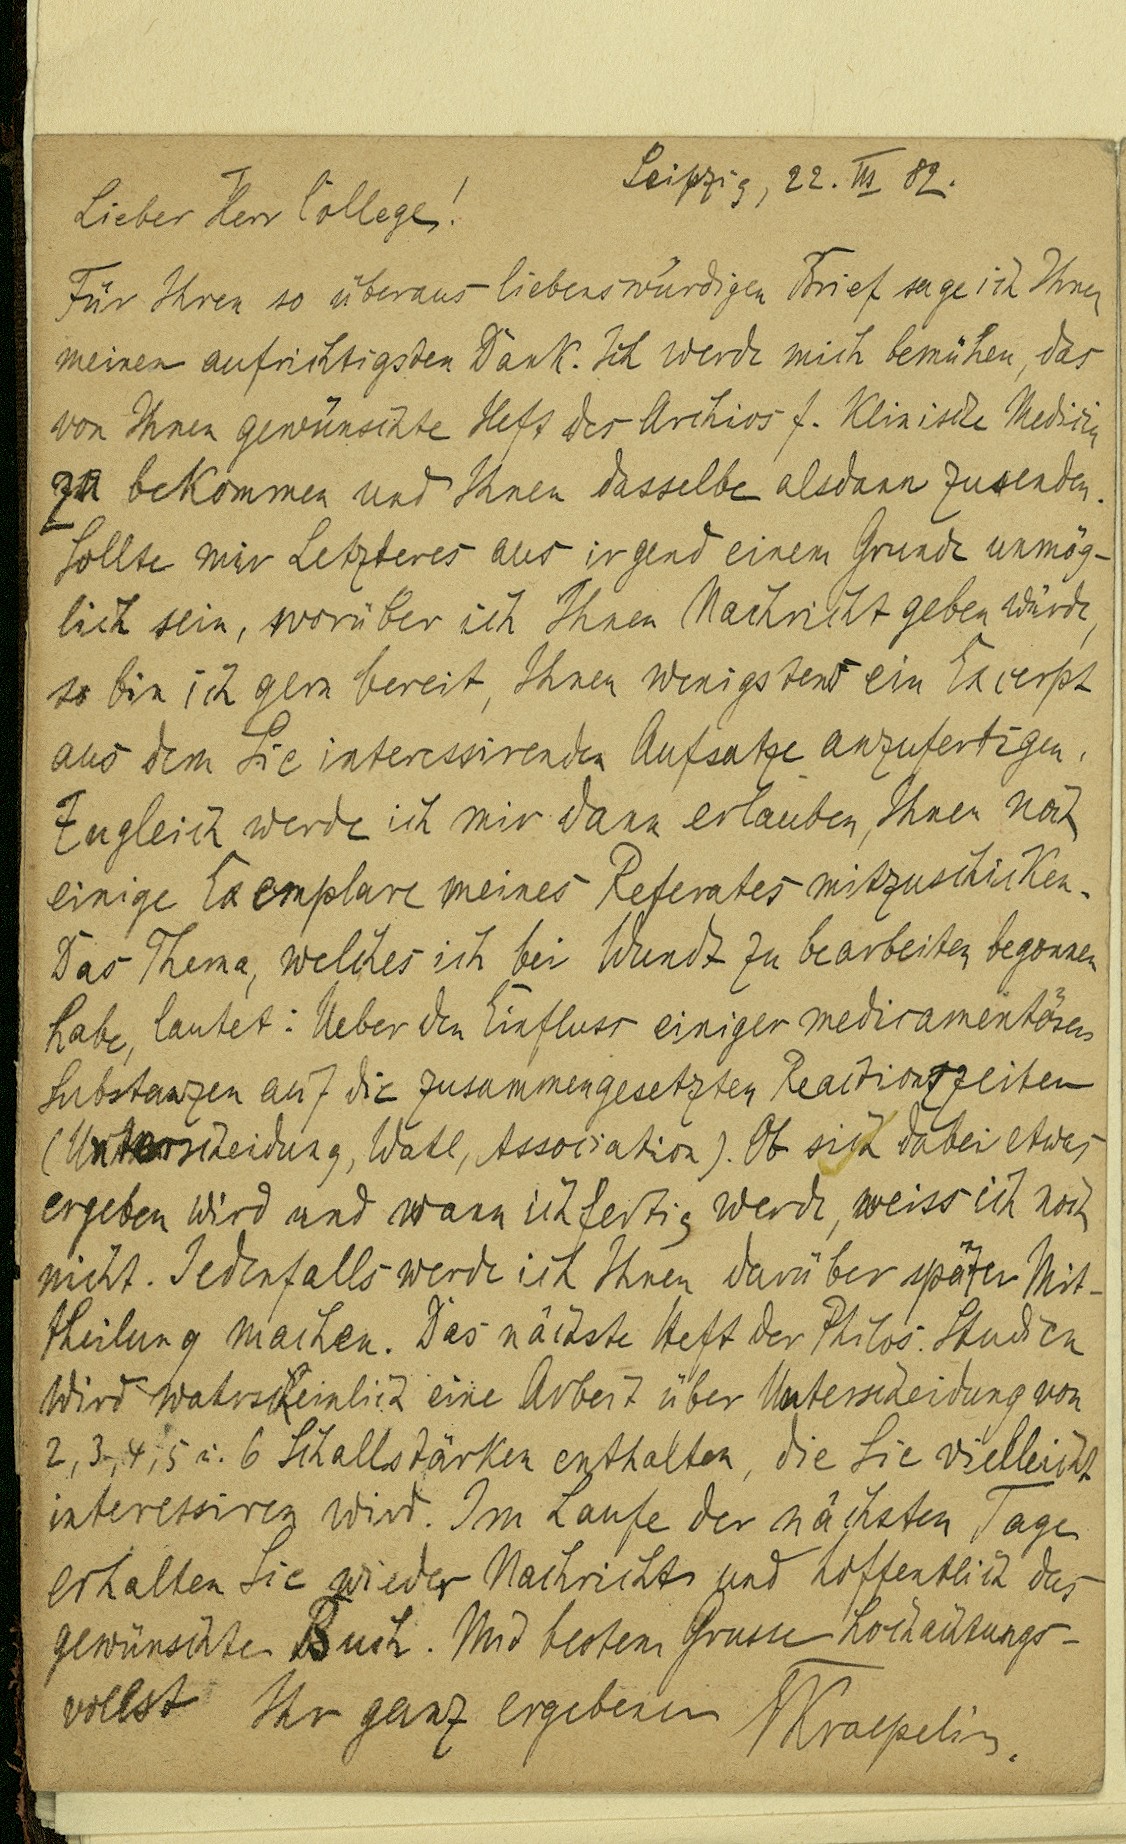 Leipzig, 22. III 82.
Lieber Herr College!
Für Ihren so überaus liebenswürdigen Brief sage ich Ihnen
meinen aufrichtigsten Dank. Ich werde mich bemühen, das
von Ihnen gewünschte Heft des Archivs f. Klinische Medicin
zu bekommen und Ihnen dasselbe alsdann zusenden.
Sollte mir Letzteres aus irgend einem Grunde unmög-
lich sein, worüber ich Ihnen Nachricht geben würde,
so bin ich gern bereit, Ihnen wenigstens ein Excerpt
aus dem Sie interessirenden Aufsatze anzufertigen.
Zugleich werde ich mir dann erlauben, Ihnen noch
einige Exemplare meines Referates mitzuschicken.
Das Thema, welches ich bei Wundt zu bearbeiten begonnen
habe, lautet: Ueber den Einfluss einiger medicamentöser
Substanzen auf die zusammengesetzten Reactionszeiten
(Unterscheidung, Wahl, Association). Ob sich dabei etwas
ergeben wird und wann ich fertig werde, weiss ich noch
nicht. Jedenfalls werde ich Ihnen darüber später Mit-
theilung machen. Das nächste Heft der Philos. Studien
wird wahrscheinlich eine Arbeit über Unterscheidung von
2, 3, 4, 5 u. 6 Schallstärken enthalten, die Sie vielleicht
interessiren wird. Im Laufe der nächsten Tage
erhalten Sie wieder Nachricht und hoffentlich das
gewünschte Buch. Mit bestem Grusse hochachtungs-
vollst Ihr ganz ergebener Kraepelin.